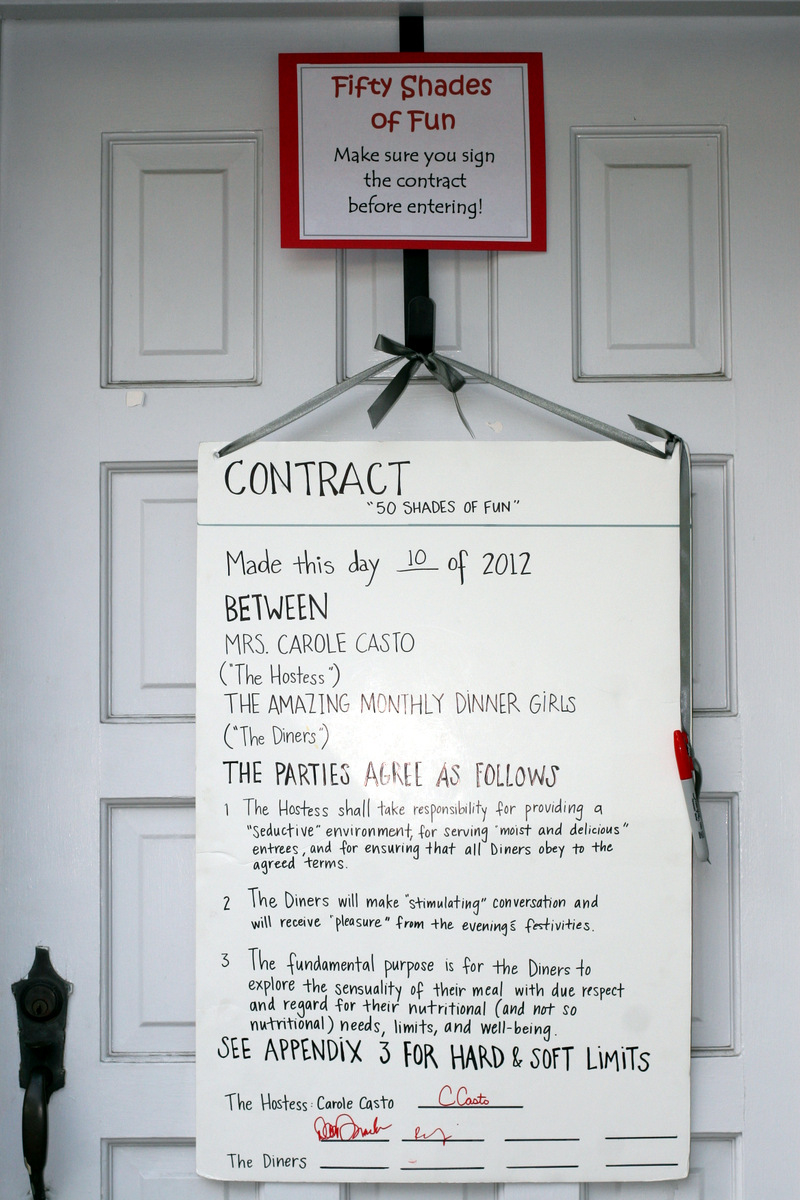 Fifty Shades
of Fun
Make sure you sign
the contract
before entering!
CONTRACT
"50 SHADES OF FUN"
Made this day 10 of 2012
BETWEEN
MRS. CAROLE CASTO
("The Hostess")
THE AMAZING MONTHLY DINNER GIRLS
("The Diners")
THE PARTIES AGREE AS FOLLOWS
1 The Hostess shall take responsibility for providing a
"seductive" environment, for serving "moist and delicious"
entrees, and for ensuring that all Diners obey to the
agreed terms.
2 The Diners will make "stimulating" conversation and
will receive "pleasure" from the evenings festivities.
3 The fundamental purpose is for the Diners to
explore the sensuality of their meal with due respect
and regard for their nutritional (and not so
nutritional) needs, limits, and well-being.
SEE APPENDIX 3 FOR HARD & SOFT LIMITS
The Hostess: Carole Casto CCasto
The Diners